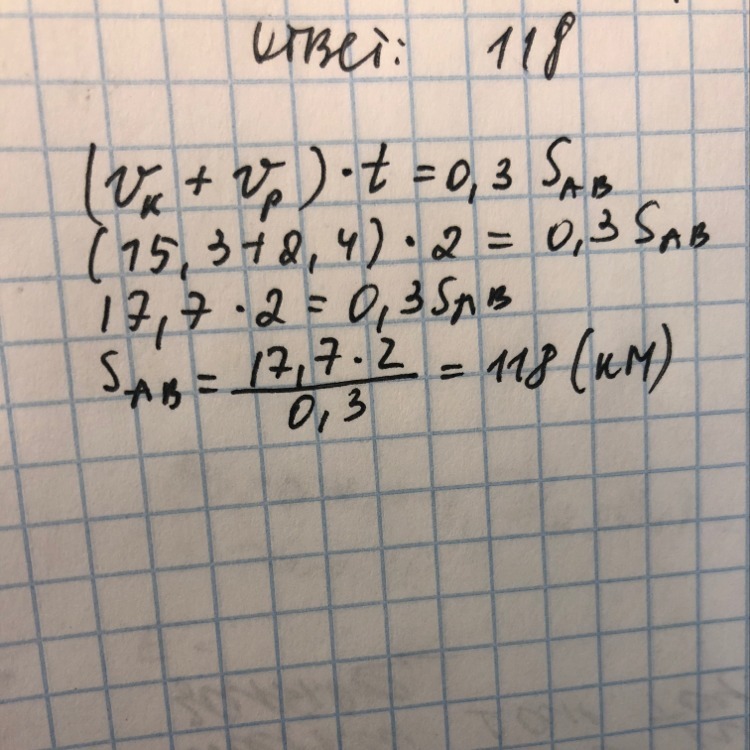 Ответ: 118
(vк + vр) · t = 0,3 SAB
(15,3+2,4) · 2 = 0,3 SAB
17,7 · 2 = 0,3 SAB
SAB = 17,7 · 2 / 0,3 = 118 (км)